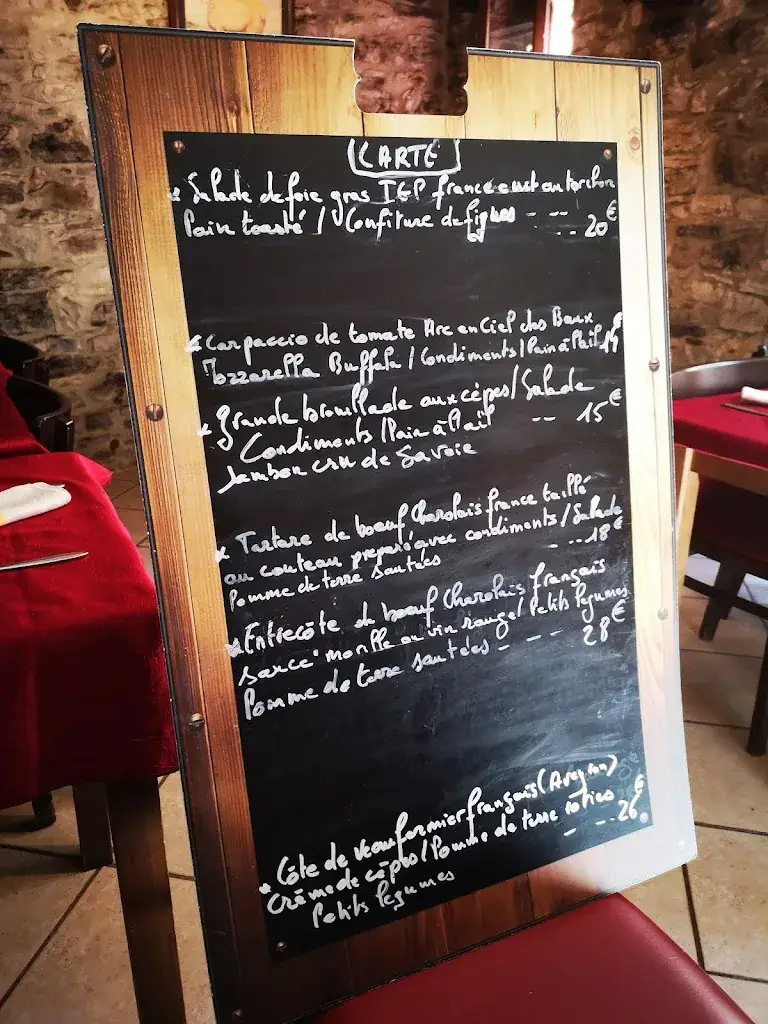 CARTE
* Salade de foie gras IGP france cuit au torchon
Pain toasté / Confiture de figues - -- -- 20€
* Carpaccio de tomate Arc en Ciel des Baux
Mozzarella Buffala / Condiments / Pain à l'ail
* Grande brouillade aux cèpes / Salade
Condiments / Pain à l'ail -- 15€
Jambon cru de Savoie
* Tartare de boeuf Charolais france taillé
au couteau préparé avec condiments / Salade
Pomme de terre sautées - --18€
* Entrecôte de boeuf Charolais français
sauce morille au vin rouge / Petits légumes
Pomme de terre sautées - - - - 28€
* Côte de veau fermier français (Aveyron)
Crème de cèpes / Pomme de terre roties
Petits légumes - --26€